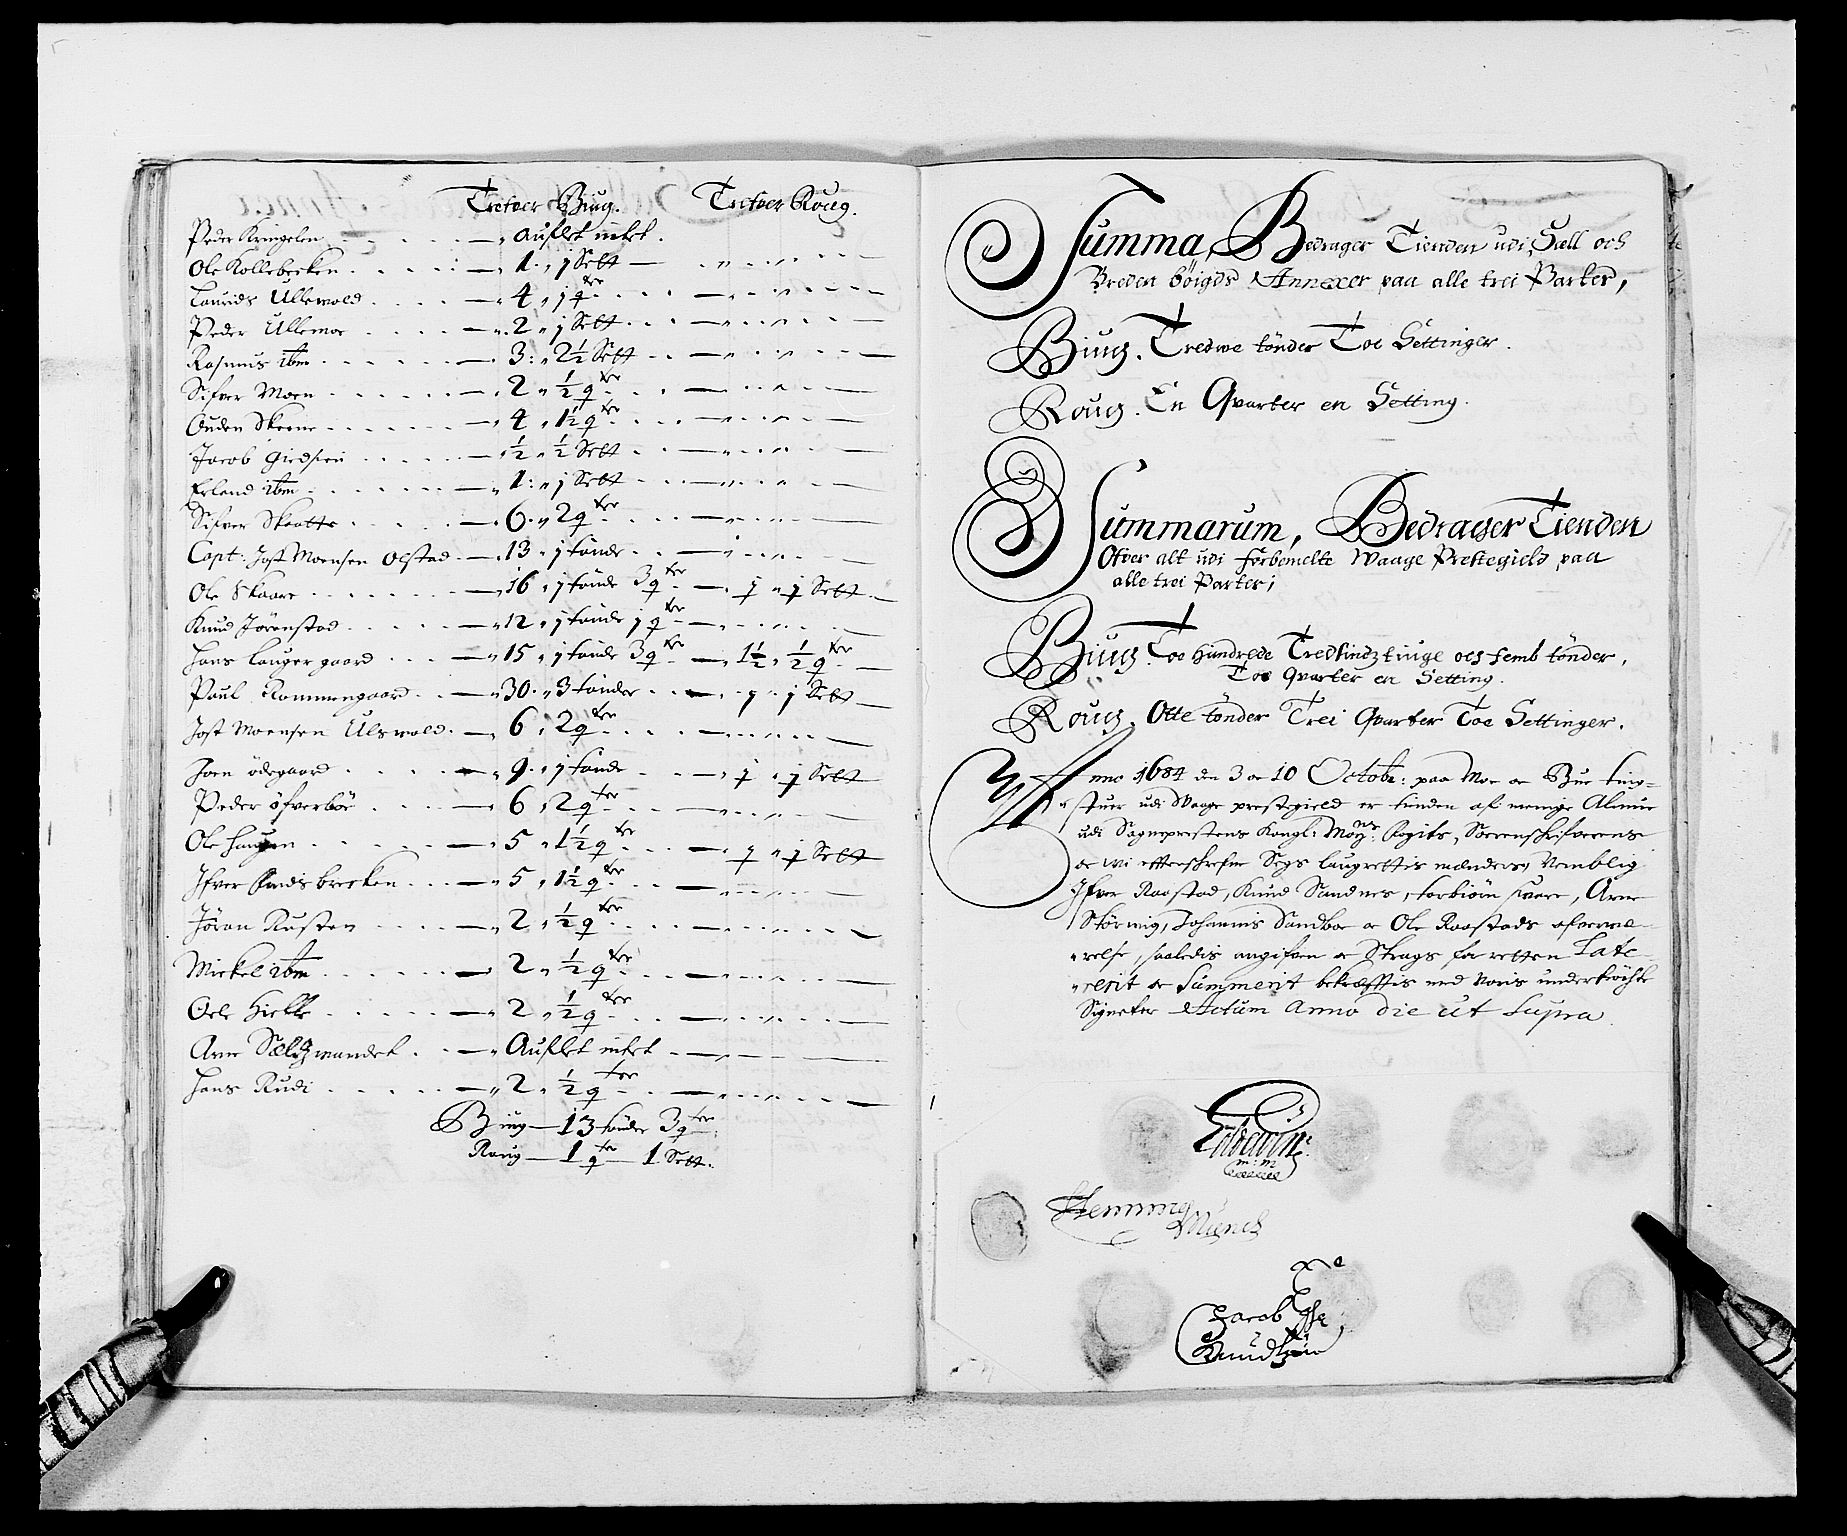 Tretver Biug. Tretver Roug.
Peder Kringelen — Auflet intet.
Ole Kollebecken — 1 „ j Sett —
Laurids Ullewold — 4 „ j qter
Peder Ullemoe — 2 „ j Sett
Rasmus ibm — 3 „ 2½ Sett
Sifver Moen — 2 „ ½ qter
Ouden Skeene — 4 „ 1½ qter
Jacob — ½ „ ½ Sett
Erland ibm — 1 „ j Sett
Sifver Skaatte — 6 „ 2 qter
Capt: Jost Moensen Olstad — 13 „ j tønde
Ole Skaare — 16 „ j tønde 3 qter — j „ j Sett
Knud Jørenstad — 12 „ j tønde j qter
Hans Laugergaard — 15 „ j tønde 3 qter — 1½ „ ½ qter
Paul Rommengaard — 30 „ 3 tønder — j „ j Sett
Jost Moensen Ulswold — 6 „ 2 qter
Joen ødegaard — 9 „ j tønde — j „ j Sett
Peder øfverbøe — 6 „ 2 qter
Ole Haugen — 5 „ 1½ qter — j „ j Sett
Ifver brecken — 5 „ 1½ qter
Jøran Rusten — 2 „ ½ qter
Mickel ibm — 2 „ ½ qter
Ole Hielle — 2 „ ½ qter
Arne Sæltzwandet — Auflet intet
Hans Rudi — 2 „ ½ qter
Biug — 13 tønder 3 qter
Roug — 1 qter — 1 Sett.
Summa, Bedrager Tienden udi Sæll och
Breden bøigds Annexer paa alle trei Parter,
Biug. Tredwe tønder Toe Settinger.
Roug. En Qvarter en Setting.
Summarum, Bedrager Tienden
Ofver alt udi forbemelte Waage Prestegield paa
alle trei Parter;
Biug. Toe Hundrede Tredsindztiuge och femb tønder,
Toe Qvarter en Setting.
Roug. Otte tønder Trei Qvarter Toe Settinger.
Anno 1684 den 3 oc 10 Octobr: paa Moe oc Bue ting-
stuer udi Waage prestegield er tienden af menige Almue
udi Sogneprestens Kongl: Mayts Fogits, Sorenschrifverens
oc wi effterschrefne Sexs laugrettis mænders, Nemblig
Ifver Raastad, Knud Sandnes, torbiørn svare, Arne
Storwig, Johannis Sandboe oc Ole Raastads ofverwæ-
relse, saaledis angifven oc Strags for retten Late-
rerit oc Summerit bekræfftis med voris undertrøchte
Signeter Actum Anno die ut Supra
m: m
Hemming
Munch
Jacob
Knudsøn